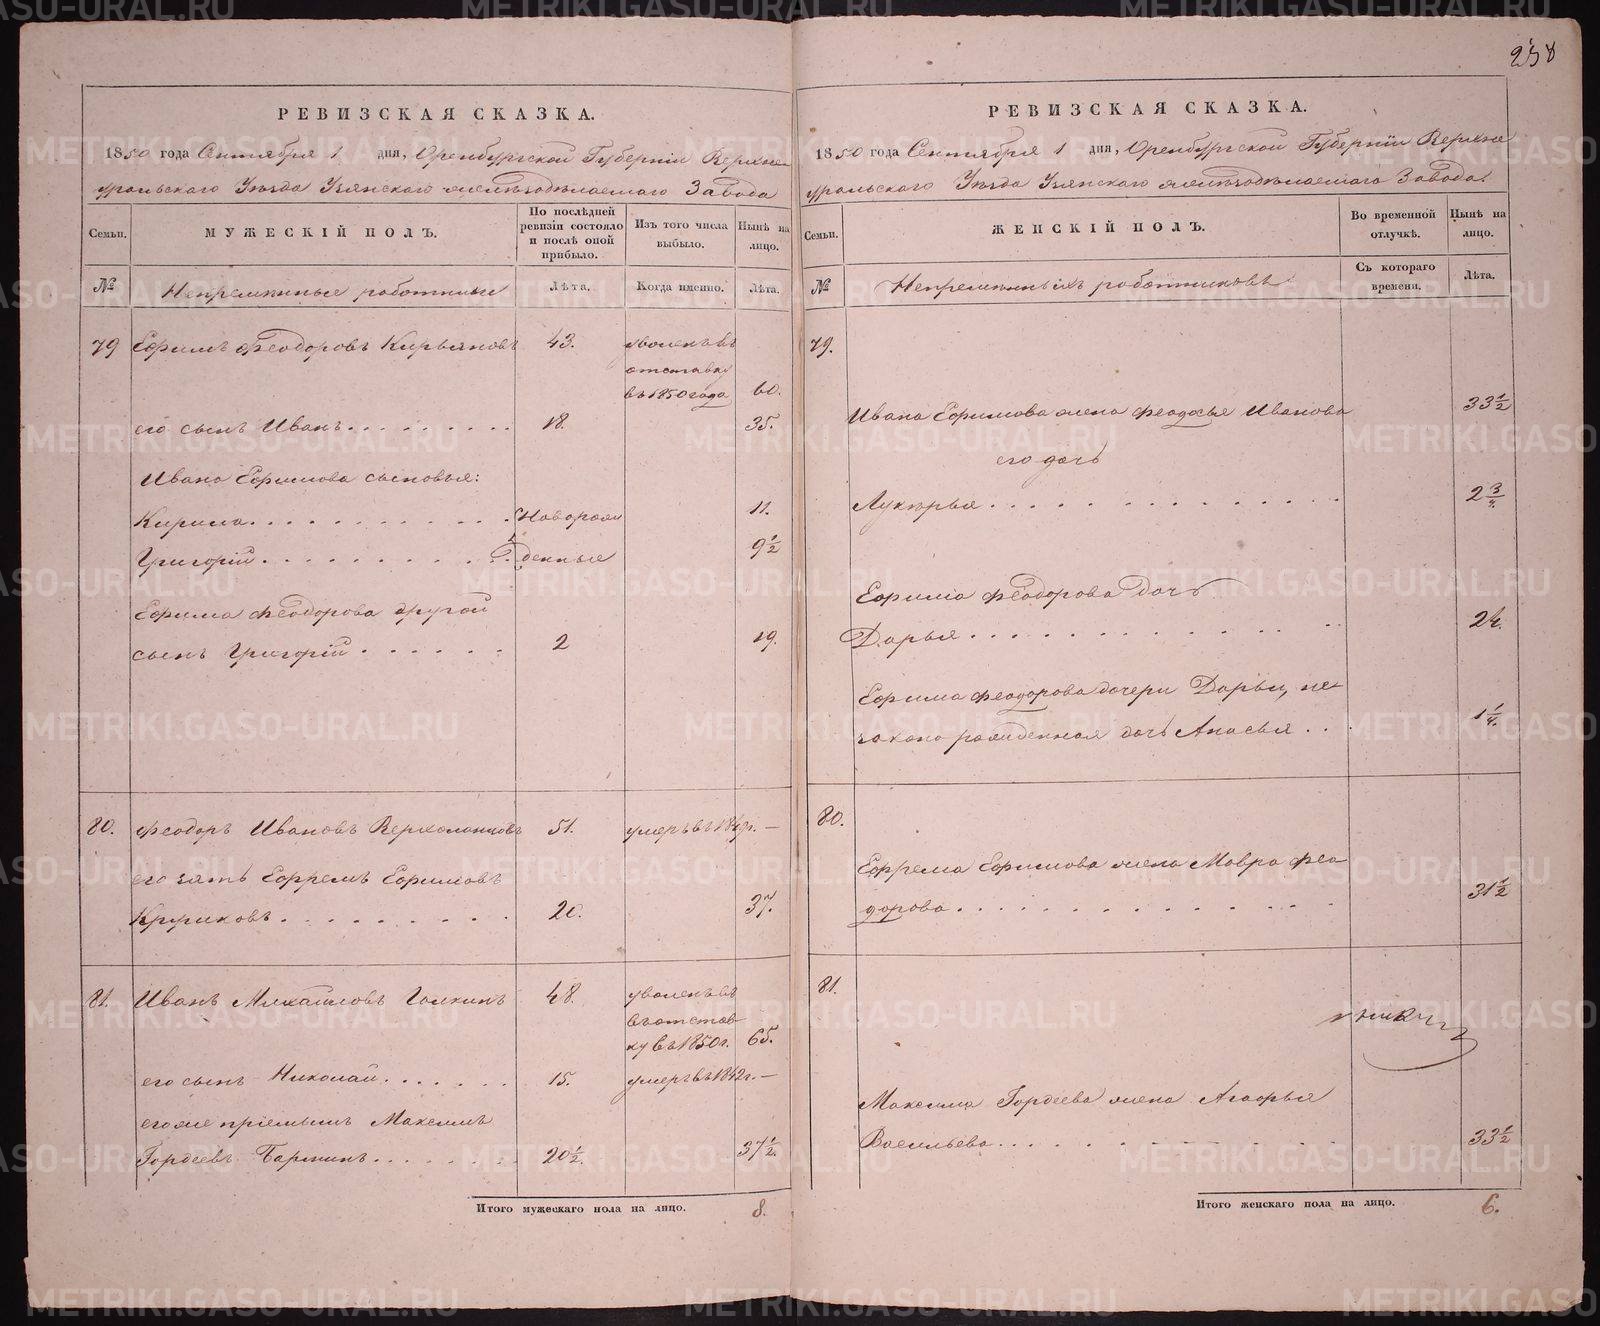 258
РЕВИЗСКАЯ СКАЗКА.
1850 года Сентября 1 дня, Оренбургской Губерніи Верхне-
уральскаго Уѣзда Узянскаго желѣзодѣлаемаго Завода
Семьи.
МУЖЕСКІЙ ПОЛЪ.
По послѣдней ревизіи состояло и послѣ оной прибыло.
Изъ того числа выбыло.
Нынѣ на лицо.
№
Непремѣнные работники
Лѣта.
Когда именно.
Лѣта.
79 Ефимъ Феодоровъ Кирьяновъ 43. уволенъ въ
отставку
въ 1850 года 60.
его сынъ Иванъ 18. 35.
Ивана Ефимова сыновья:
Кирила Новорож 11.
Григорій денные 9 1/2
Ефима Феодорова другой
сынъ Григорій 2 19.
80. Феодоръ Ивановъ 51. умеръ въ 1849г. —
его зять Ефремъ Ефимовъ
20. 37.
81. Иванъ Михайловъ Галкинъ 48. уволенъ
въ отстав
ку въ 1850г. 65.
его сынъ Николай 15. умеръ въ 1842г. —
его же пріемышъ Максимъ
Гордѣевъ 20 1/2. 37 1/2.
Итого мужескаго пола на лицо. 8.
РЕВИЗСКАЯ СКАЗКА.
1850 года Сентября 1 дня, Оренбургской Губерніи Верхне
уральскаго Уѣзда Узянскаго желѣзодѣлаемаго Завода.
Семьи.
ЖЕНСКІЙ ПОЛЪ.
Во временной отлучкѣ.
Нынѣ на лицо.
№
Непремѣнныхъ работниковъ
Съ котораго времени.
Лѣта.
79.
Ивана Ефимова жена Феодосья Иванова 33 1/2
его дочь
Лукерья 2 3/4.
Ефима Феодорова дочь
Дарья 24.
Ефима Феодорова дочери Дарьи, не-
закона рожденная дочь 1 1/4.
80.
Ефрема Ефимова жена Мавра Фео-
дорова 31 1/2
81.
Максима Гордѣева жена Агафья
Васильева 33 1/2
Итого женскаго пола на лицо. 6.
METRIKI.GASO-URAL.RU